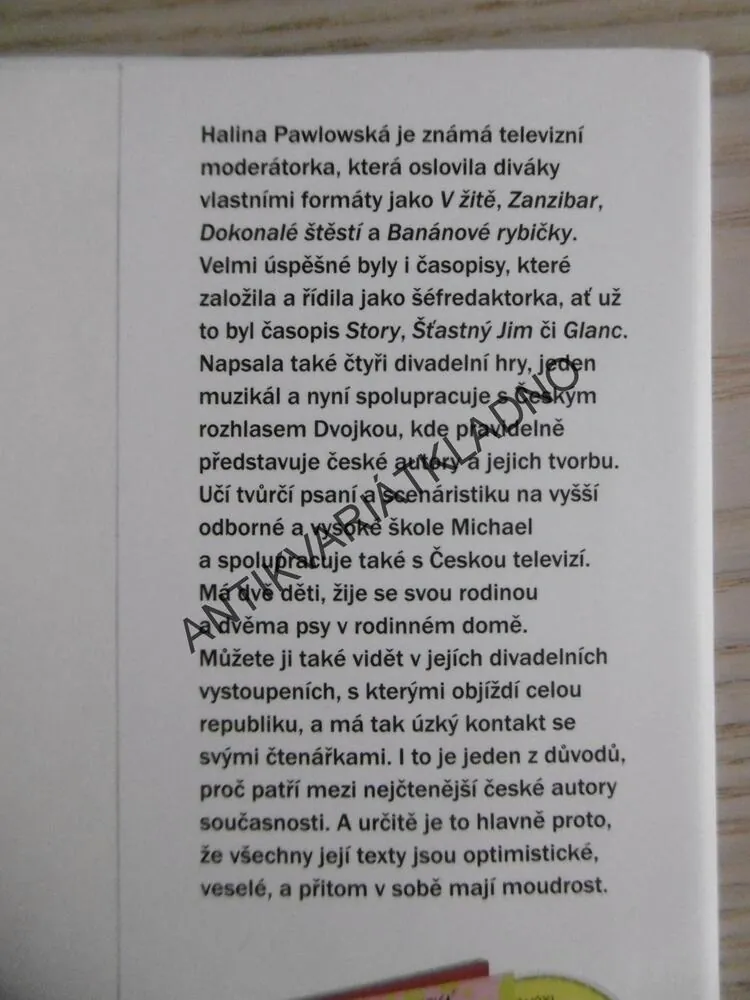 Halina Pawlowská je známá televizní
moderátorka, která oslovila diváky
vlastními formáty jako V žitě, Zanzibar,
Dokonalé štěstí a Banánové rybičky.
Velmi úspěšné byly i časopisy, které
založila a řídila jako šéfredaktorka, ať už
to byl časopis Story, Šťastný Jim či Glanc.
Napsala také čtyři divadelní hry, jeden
muzikál a nyní spolupracuje s Českým
rozhlasem Dvojkou, kde pravidelně
představuje české autory a jejich tvorbu.
Učí tvůrčí psaní a scenáristiku na vyšší
odborné a vysoké škole Michael
a spolupracuje také s Českou televizí.
Má dvě děti, žije se svou rodinou
a dvěma psy v rodinném domě.
Můžete ji také vidět v jejích divadelních
vystoupeních, s kterými objíždí celou
republiku, a má tak úzký kontakt se
svými čtenářkami. I to je jeden z důvodů,
proč patří mezi nejčtenější české autory
současnosti. A určitě je to hlavně proto,
že všechny její texty jsou optimistické,
veselé, a přitom v sobě mají moudrost.
ANTIKVARIÁTKLADNO